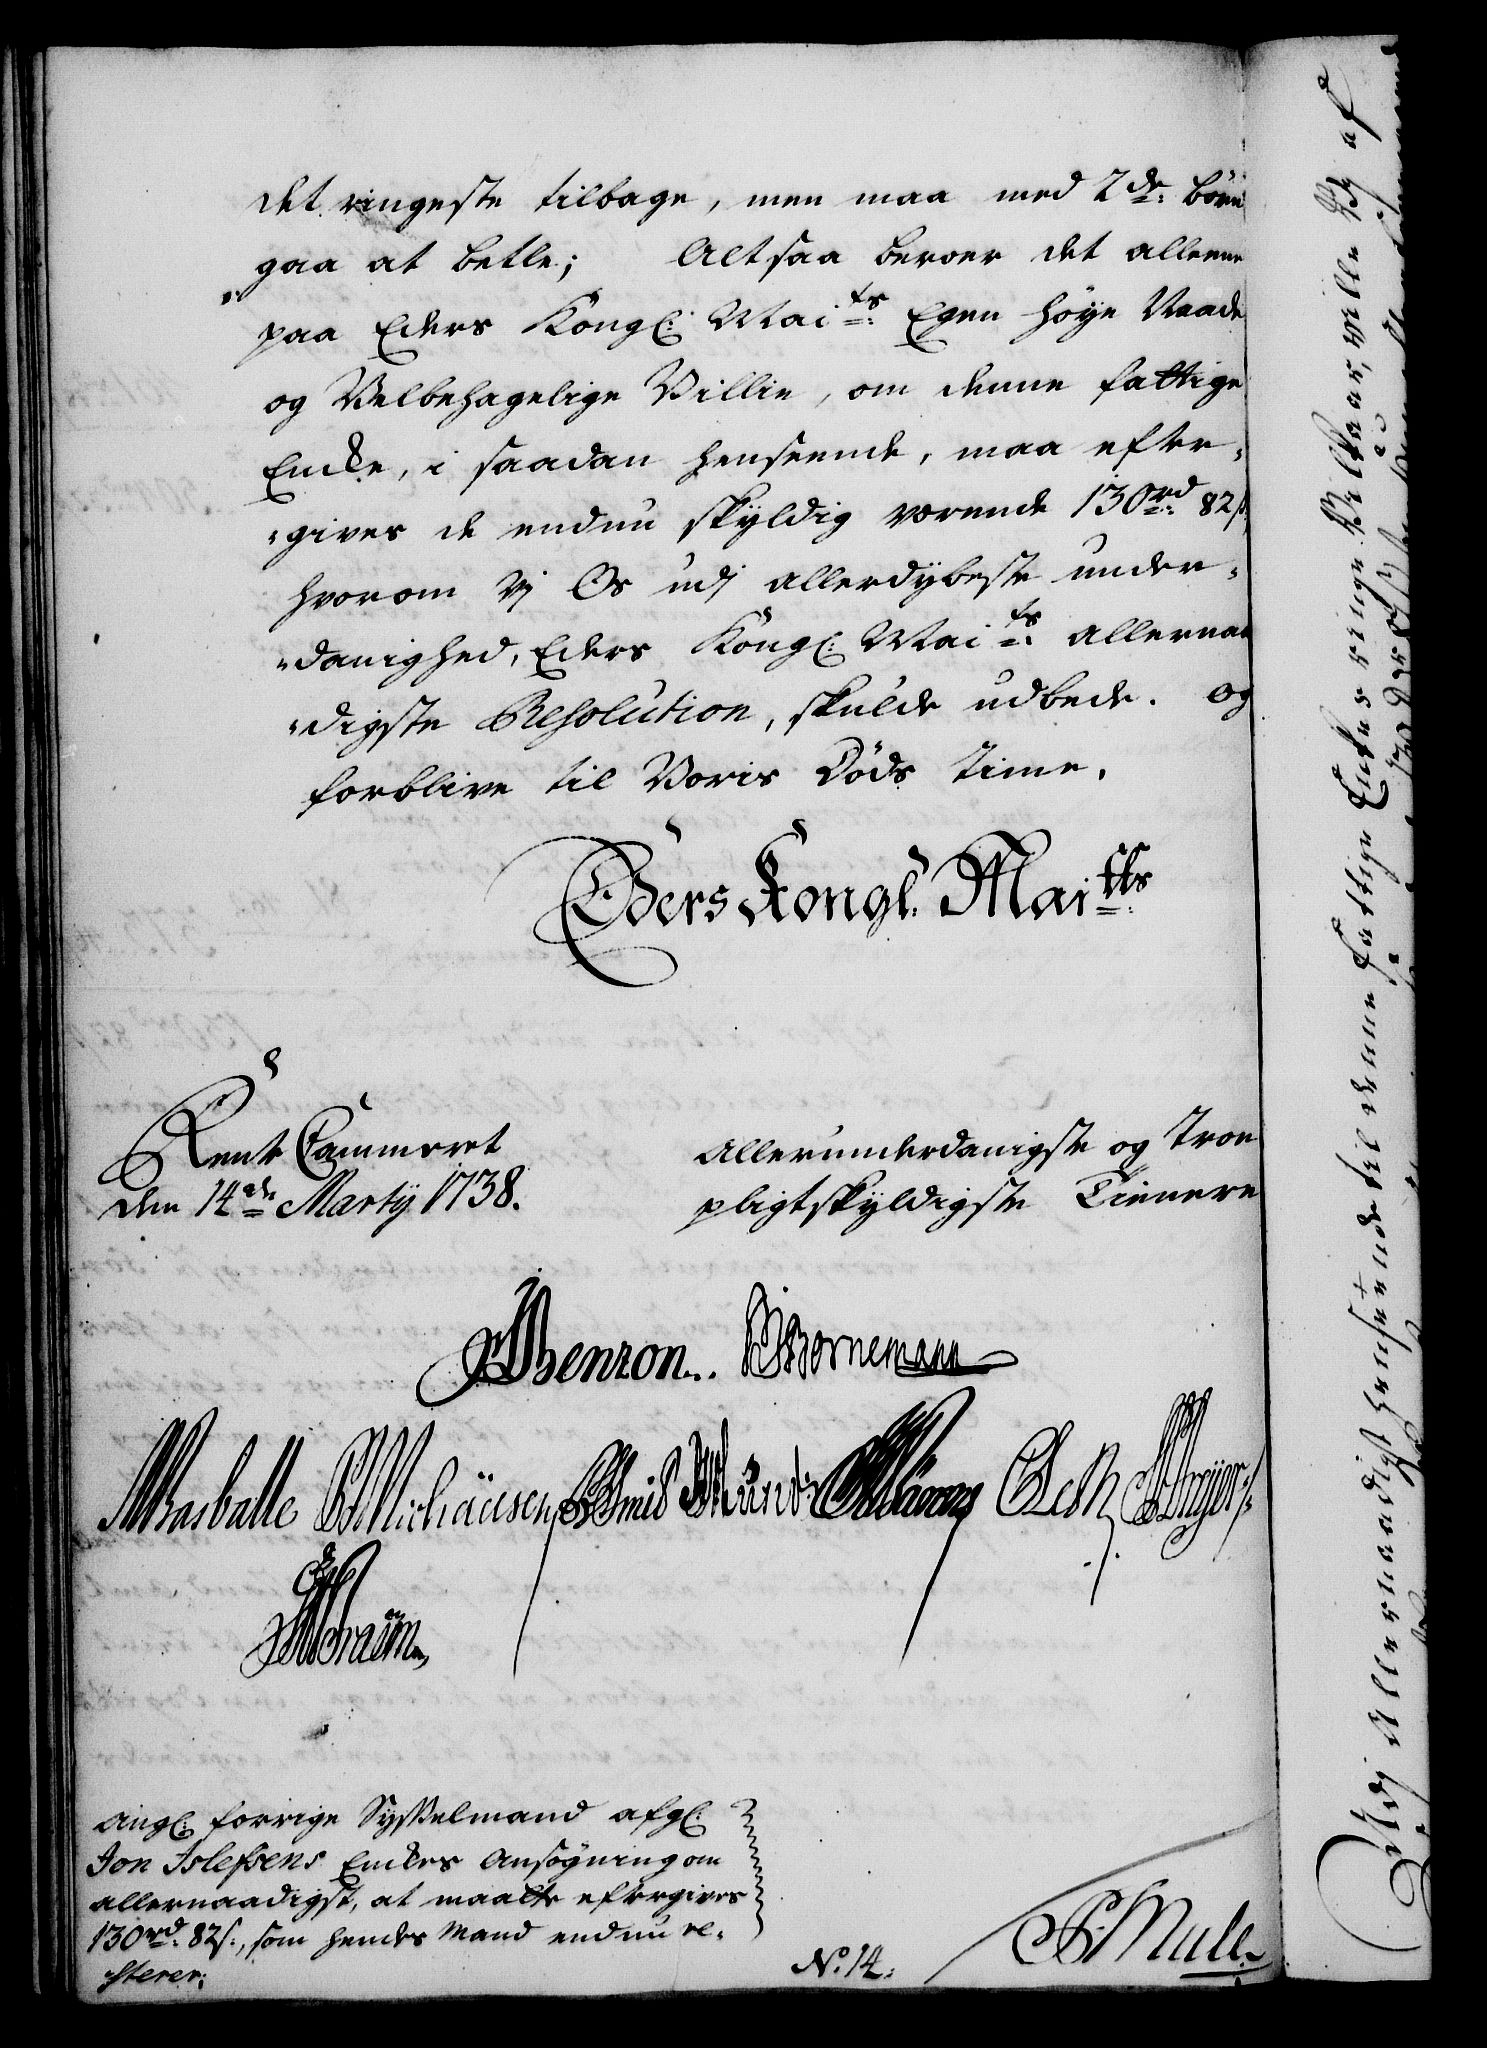 det ringeste tilbage, men maa med 2de: börn
gaa at betle; Altsaa beroer det alleene
paa Eders Kongl: Maits: Egen höye Naade
og Velbehagelige Villie, om denne fattige
Encke, i saadan henseende, maa efter-
"gives de endnu skÿldig værende 130rd: 82s,
hvorom Vj Os udj allerdÿbeste under-
"danighed, Eders Kongl: Maits: allernaa
"digste Resolution, skulde udbede. og
forblive til Voris Döds Time,
Eders Kongl: Maitts:
Rente Cammeret
den 14de Martÿ 1738.
Allerunderdanigste og Troe
pligtskÿldigste Tienere
Benzon. Bornemann
Basballe Michäusen Smid Munch
Thraüm
Angl: forrige Sysselmand afgl:
Jon Islefsens Enckes Ansögning om
allernaadigst, at maatte eftergives
130rd: 82s:, som hendes Mand endnu re-
sterer;
No: 14:
Mule
Udj Allernaadigst henseende til denne fattige Enkes ringe Vilkaar, Ville Vj af